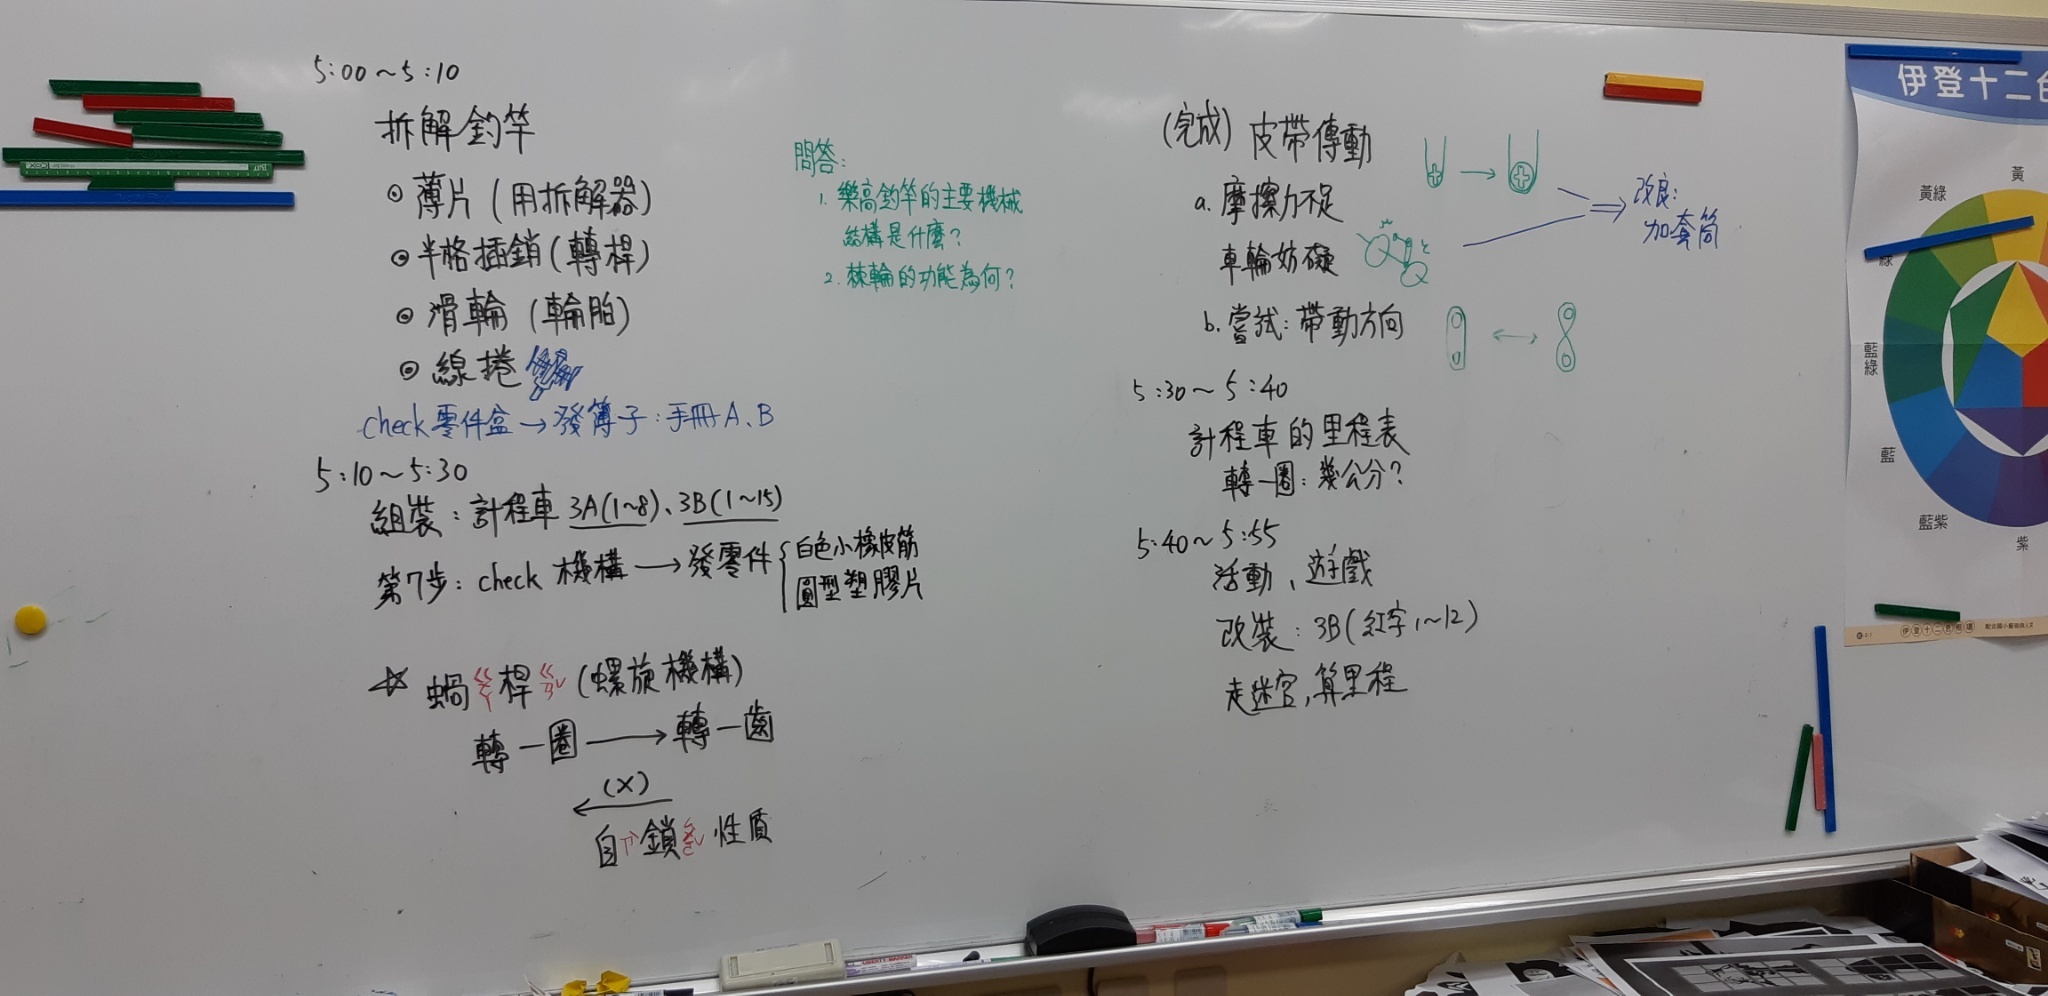 5:00～5:10
拆解釣竿
⊙ 薄片 (用拆解器)
⊙ 半格插銷 (轉桿)
⊙ 滑輪 (輪胎)
⊙ 線捲
check 零件盒 → 發簿子：手冊 A、B
問答：
1. 樂高釣竿的主要機械
結構是什麼？
2. 棘輪的功能為何？
5:10～5:30
組裝：計程車 3A(1~8)、3B(1~15)
第7步：check 機構 → 發零件 { 白色小橡皮筋
圓型塑膠片
☆ 蝸ㄍㄨㄚ桿ㄍㄢˇ (螺旋機構)
轉一圈 → 轉一齒
(X)
←
自ㄗˋ鎖ㄙㄨㄛˇ性質
(完成) 皮帶傳動
a. 摩擦力不足
車輪妨礙
⇒ 改良：
加套筒
b. 嘗試：帶動方向
5:30～5:40
計程車的里程表
轉一圈：幾公分？
5:40～5:55
活動、遊戲
改裝：3B (紅字 1~12)
走迷宮，算里程
伊登十二色
黃
黃綠
綠
藍綠
藍
藍紫
紫